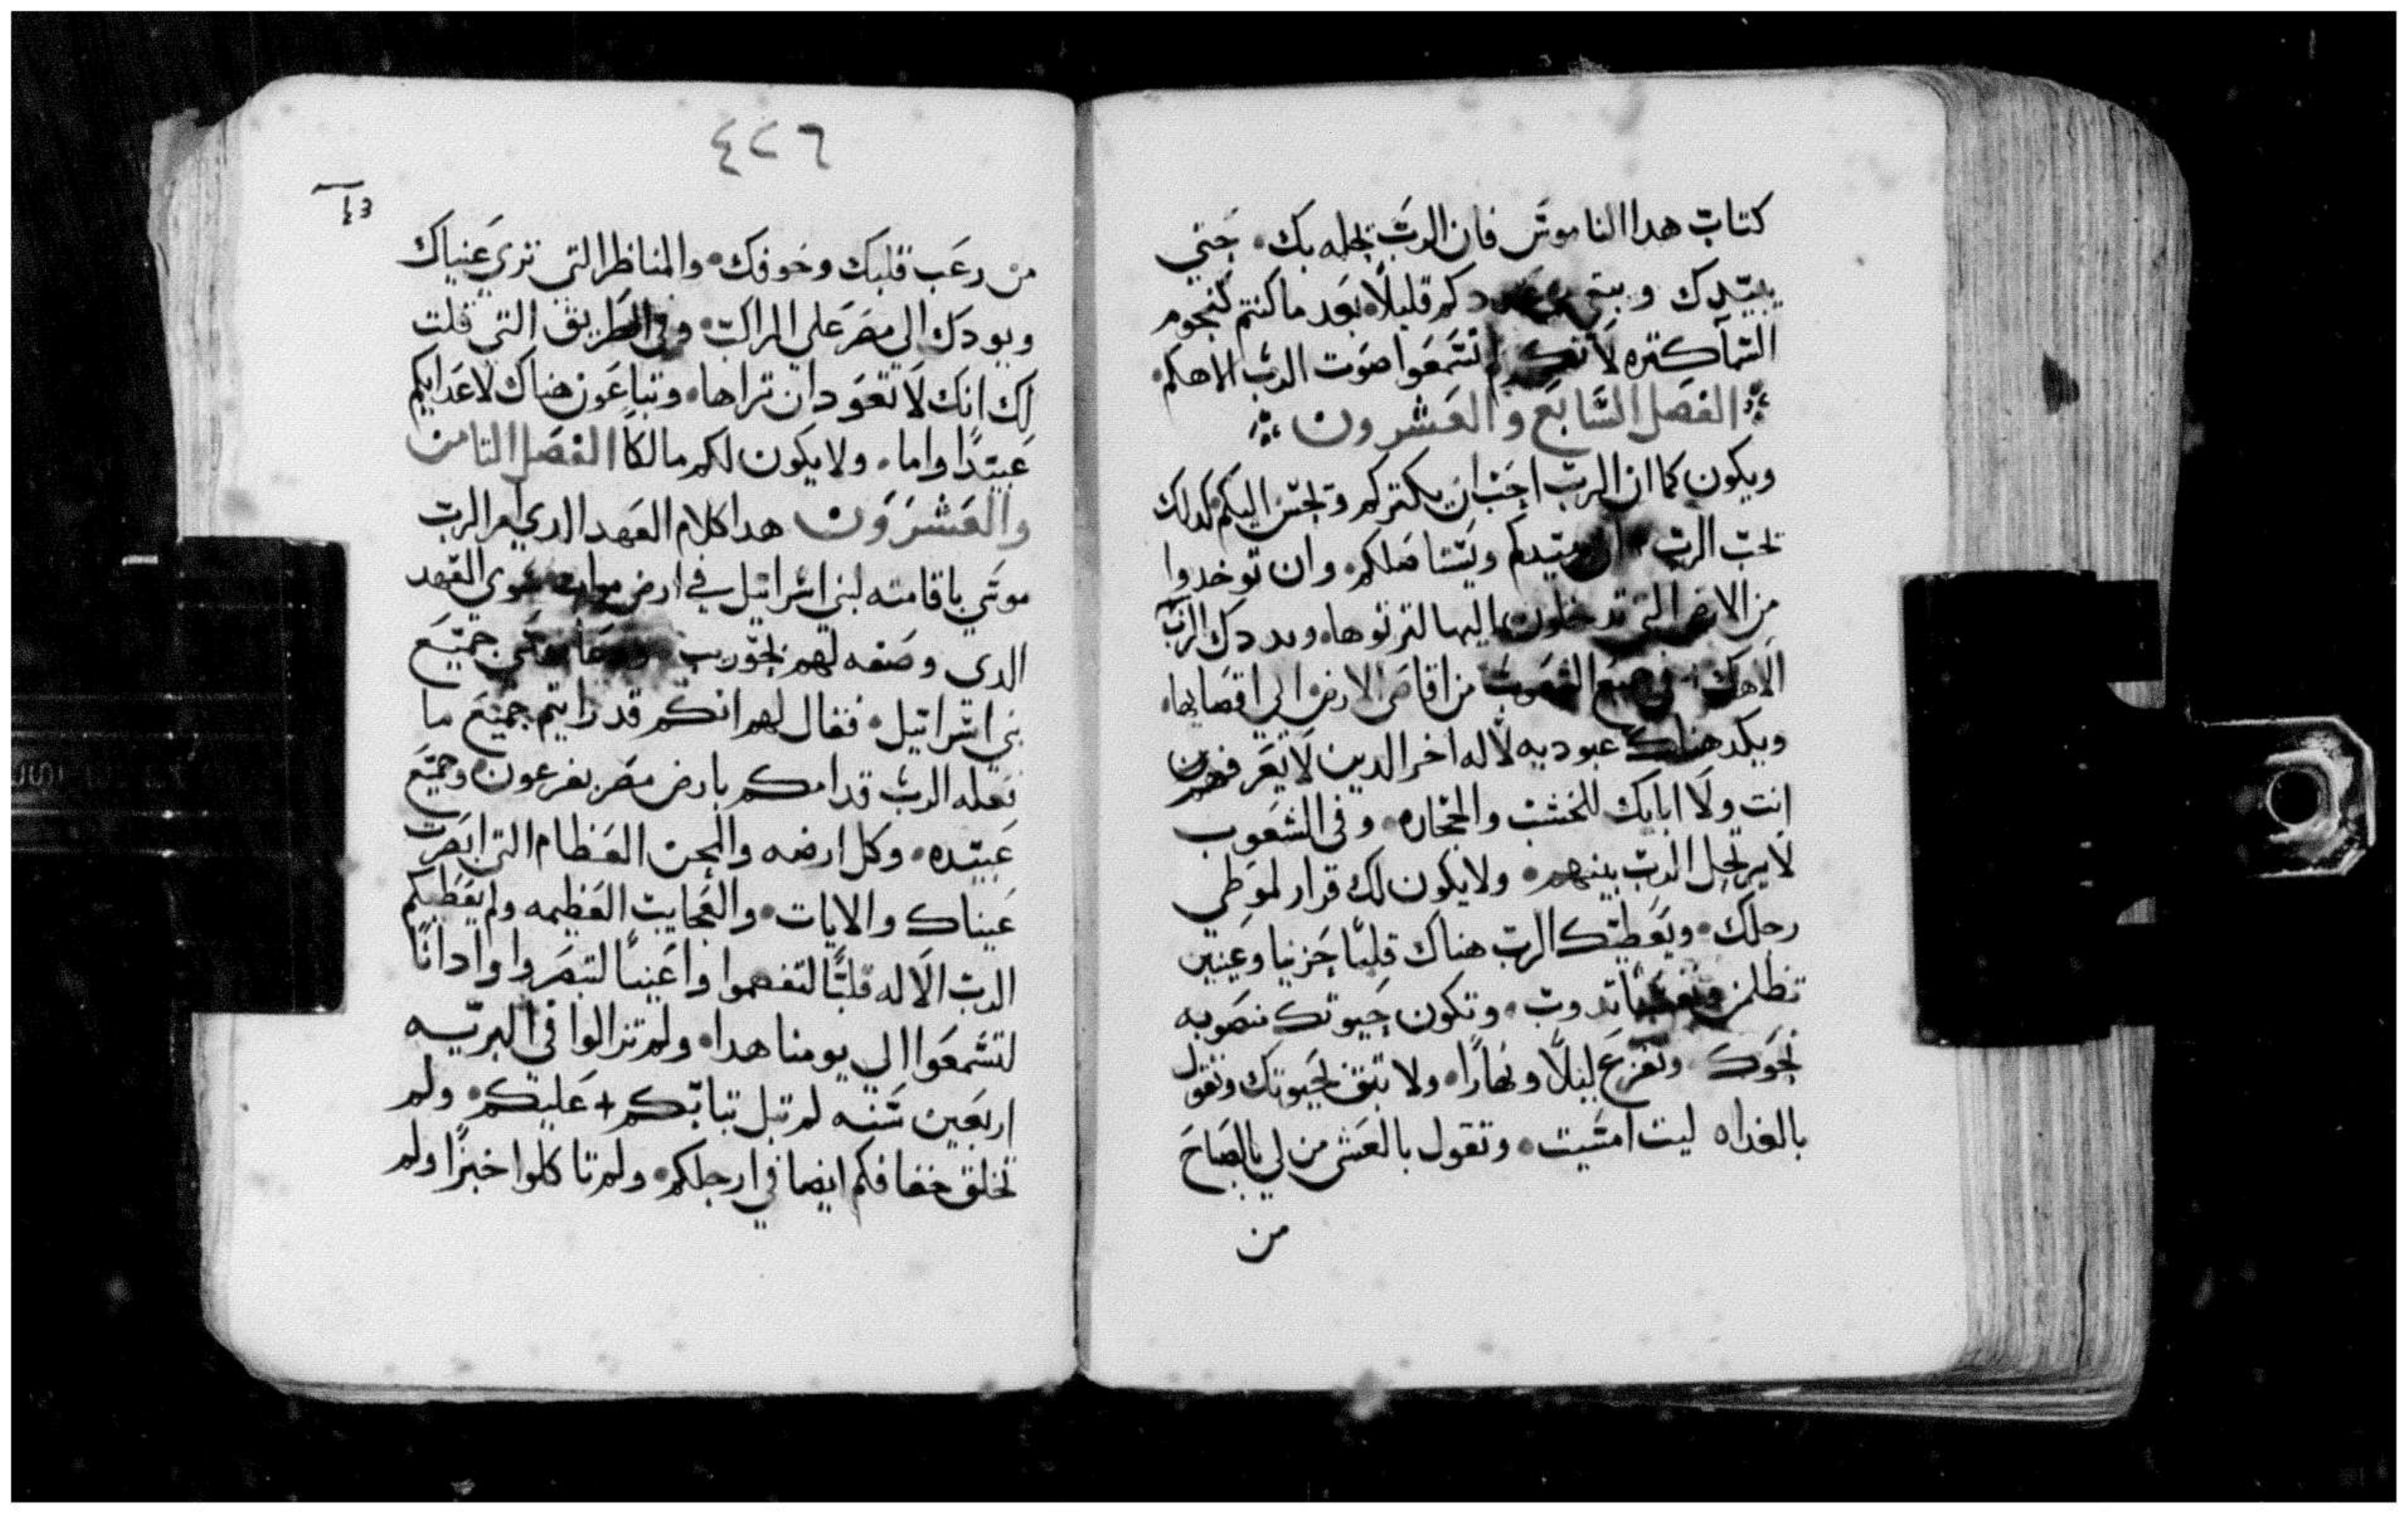 كتاب هدا الناموس فان الرب يجلبه بك. حتي
يبيدك ويبقي عددكم قليلاً بعد ما كنتم كنجوم
السمآ كتره لانكم لم تسمعوا صوت الرب الاهكم.
الفصل السابع والعشرون
ويكون كما ان الرب احب ان يكتركم ويحسن اليكم كدلك
يحب الرب ان يبيدكم ويستاصلكم. وان توخدوا
من الارض التي تدخلون اليها لترتوها. ويبددك الرب
الاهك في جميع الشعوب من اقاصي الارض الي اقصايها.
ويكد هناك عبوديه لاله اخر الدين لا يعرفهم
انت ولا ابايك للخشب والحجاره. وفي الشعوب
لا يريحك الرب بينهم. ولا يكون لك قرار لموطي
رجلك. ويعطيك الرب هناك قلباً حزنيا وعينين
تظلمن ونفساً تدوب. وتكون حيوتك منصوبه
نحوك وتفزع ليلاً ونهارًا. ولا تتق بحيوتك وتقول
بالغداه ليت امسيت. وتقول بالعشي من لي بالصباح
من
٤٢٦
من رعب قلبك وخوفك. والمناظر التي تري عنياك
ويودك الي مصر علي المراكب. وفي الطريق التي قلت
لك انك لا تعود ان تراها. وتباعون هناك لاعدايكم
عبيدًا واما. ولا يكون لكم مالكا الفصل التامن
والعشرون هدا كلام العهد الدي امر الرب
موسي باقامته لبني اسراييل في ارض مواب سوي العهد
الدي وصفه لهم بحوريب ودعا موسي جميع
بني اسراييل. فقال لهم انكم قد رايتم جميع ما
فعله الرب قدامكم بارض مصر بفرعون وجميع
عبيده. وكل ارضه والمحن العظام التي ابصرت
عيناك والايات. والعجايب العظيمه ولم يعطيكم
الرب الاله قلباً لتفهموا واعيناً لتبصروا وادانًا
لتسمعوا الي يومنا هدا. ولم تزالوا في البريه
اربعين سنه لم تبل تيابكم + عليكم. ولم
تخلق خفافكم ايضا في ارجلكم. ولم تاكلوا خبزًا ولم